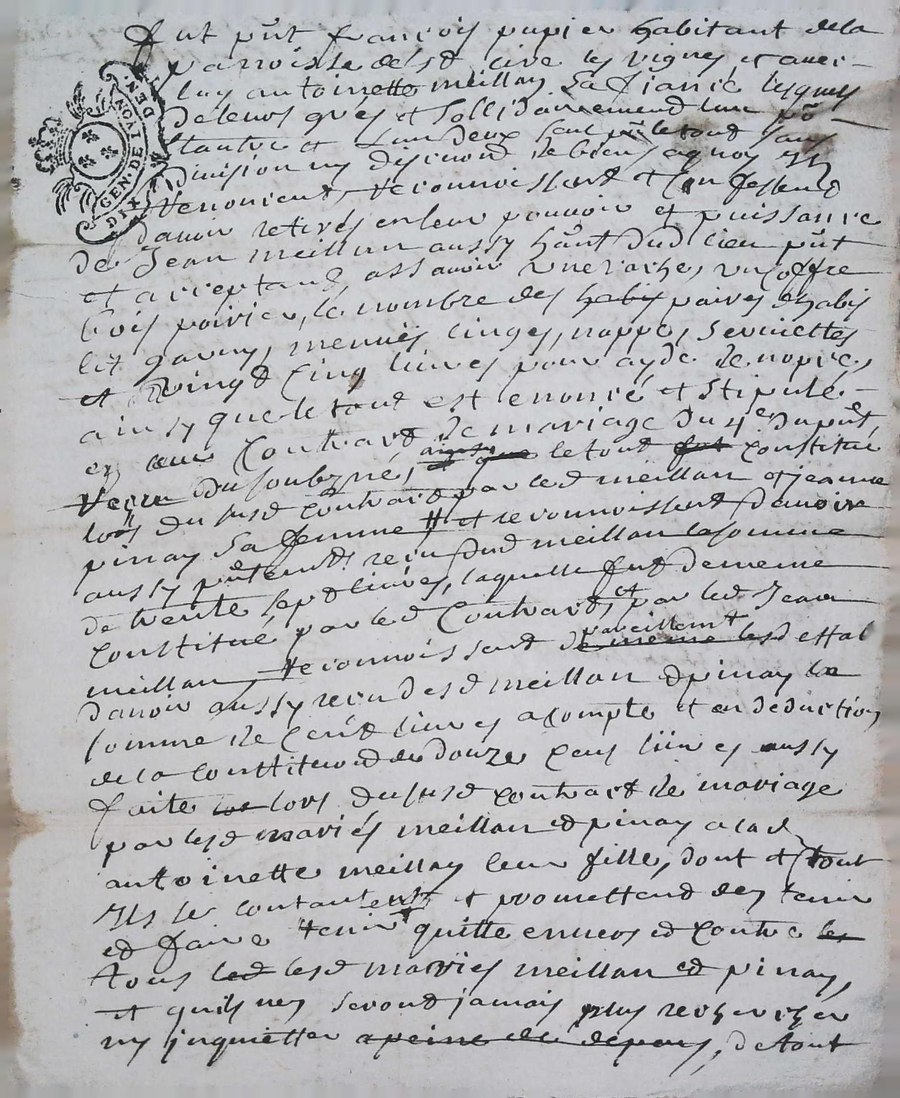 fut pnt françois papier habitant dela
parroisse de st cire les vignes, et avec
luy antoinette meillan Sa fiancé lesquels
GEN. DE LYON
DIX DEN.
De leurs grés et sollidairement lun pō
lautre et Lun deux seul pr le tout sans
Division ny discution de biens a quoy Ils
Renoncent, Reconnoissent et Confessent
davoir retirés en leur pouvoir et puissance
de Jean meillan aussy hānt dud lieu pnt
et acceptand, assavoir une vache, un coffre
bois poirier, le nombre des habis paires dhabis
lit garny, menues linges, nappes, serviettes
et vingt cinq livres pour ayde de nopces,
ainsy que le tout est enoncé et stipulé
en leur Contract de mariage du 4e du pnt
Reçeu du soubzné, ainsy que le tout fut constitué
lors du susd contract par led meillan et jeanne
pinay Sa femme et reconnoissent davoir
aussy pntement reçu dud meillan la somme
de trente sept livres, laquelle fut de meme
constitué par led Contract, et par led Jean
meillan, Reconnoissent de meme pareillemt lesd
davoir aussy receu desd meillan et pinay la
somme de cent livres acompte et en deduction
de la constitution de douze cens livres aussy
faite lors du susd contract de mariage
par lesd mariés meillan et pinay a lad
antoinette meillan leur fille, dont et tout
Ils se contantent et promettent den tenir
et faire tenir quitte envers et contre les
tous led lesd mariés meillan et pinay,
et quils nen seront jamais plus recherchés
ny inquietter a peine de depens, de tout